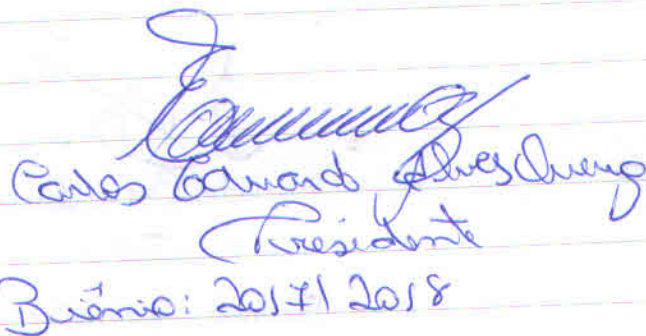 Carlos Eduardo Alves
Presidente
Biênio: 2017/2018